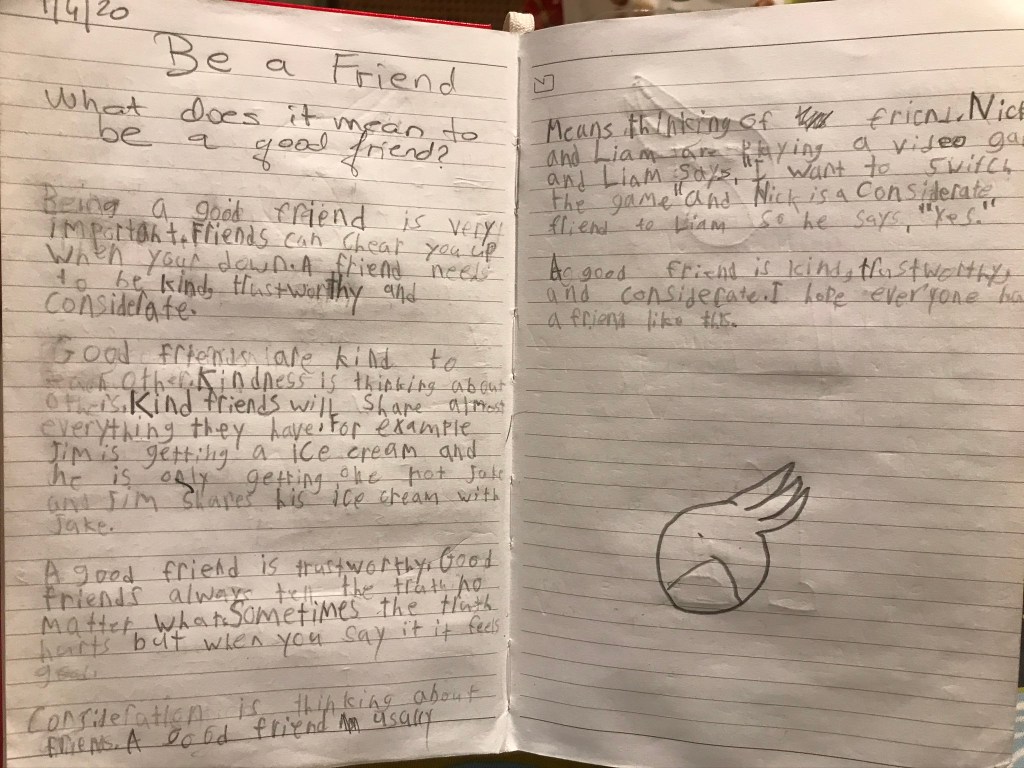 1/4/20
Be a Friend
What does it mean to
be a good friend?
Being a good friend is very
important. Friends can chear you up
when your down. A friend needs
to be kind, trustworthy and
considerate.
Good friends are kind to
each other. Kindness is thinking about
others. Kind friends will share almost
everything they have. For example
Jim is getting a ice cream and
he is only getting one not Jake
and Jim shares his ice cream with
Jake.
A good friend is trustworthy. Good
friends always tell the truth no
matter what. Sometimes the truth
hurts but when you say it it feels
good.
Consideration is thinking about
friens. A good friend usally
Means thinking of friend. Nick
and Liam are playing a video
and Liam says, "I want to switch
the game" and Nick is a considerate
friend to Liam so he says, "Yes."
A good friend is kind, trustworthy,
and considerate. I hope everyone
a friend like this.